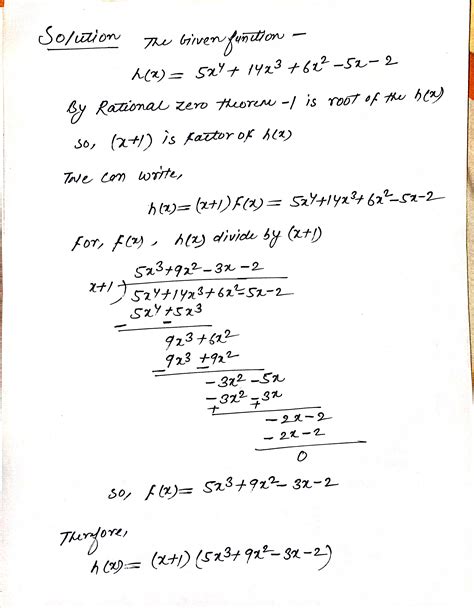 Solution The Given function –
h(x) = 5x⁴ + 14x³ + 6x² – 5x – 2
By Rational zero theorem –1 is root of the h(x)
so, (x+1) is factor of h(x)
We can write,
h(x) = (x+1) f(x) = 5x⁴+14x³+6x²–5x–2
For, f(x), h(x) divide by (x+1)
5x³+9x²–3x–2
x+1 ) 5x⁴+14x³+6x²–5x–2
5x⁴+5x³
– –
9x³+6x²
9x³+9x²
– –
–3x²–5x
–3x²–3x
+ +
–2x–2
–2x–2
0
so, f(x) = 5x³+9x²–3x–2
Therefore,
h(x) = (x+1) (5x³+9x²–3x–2)